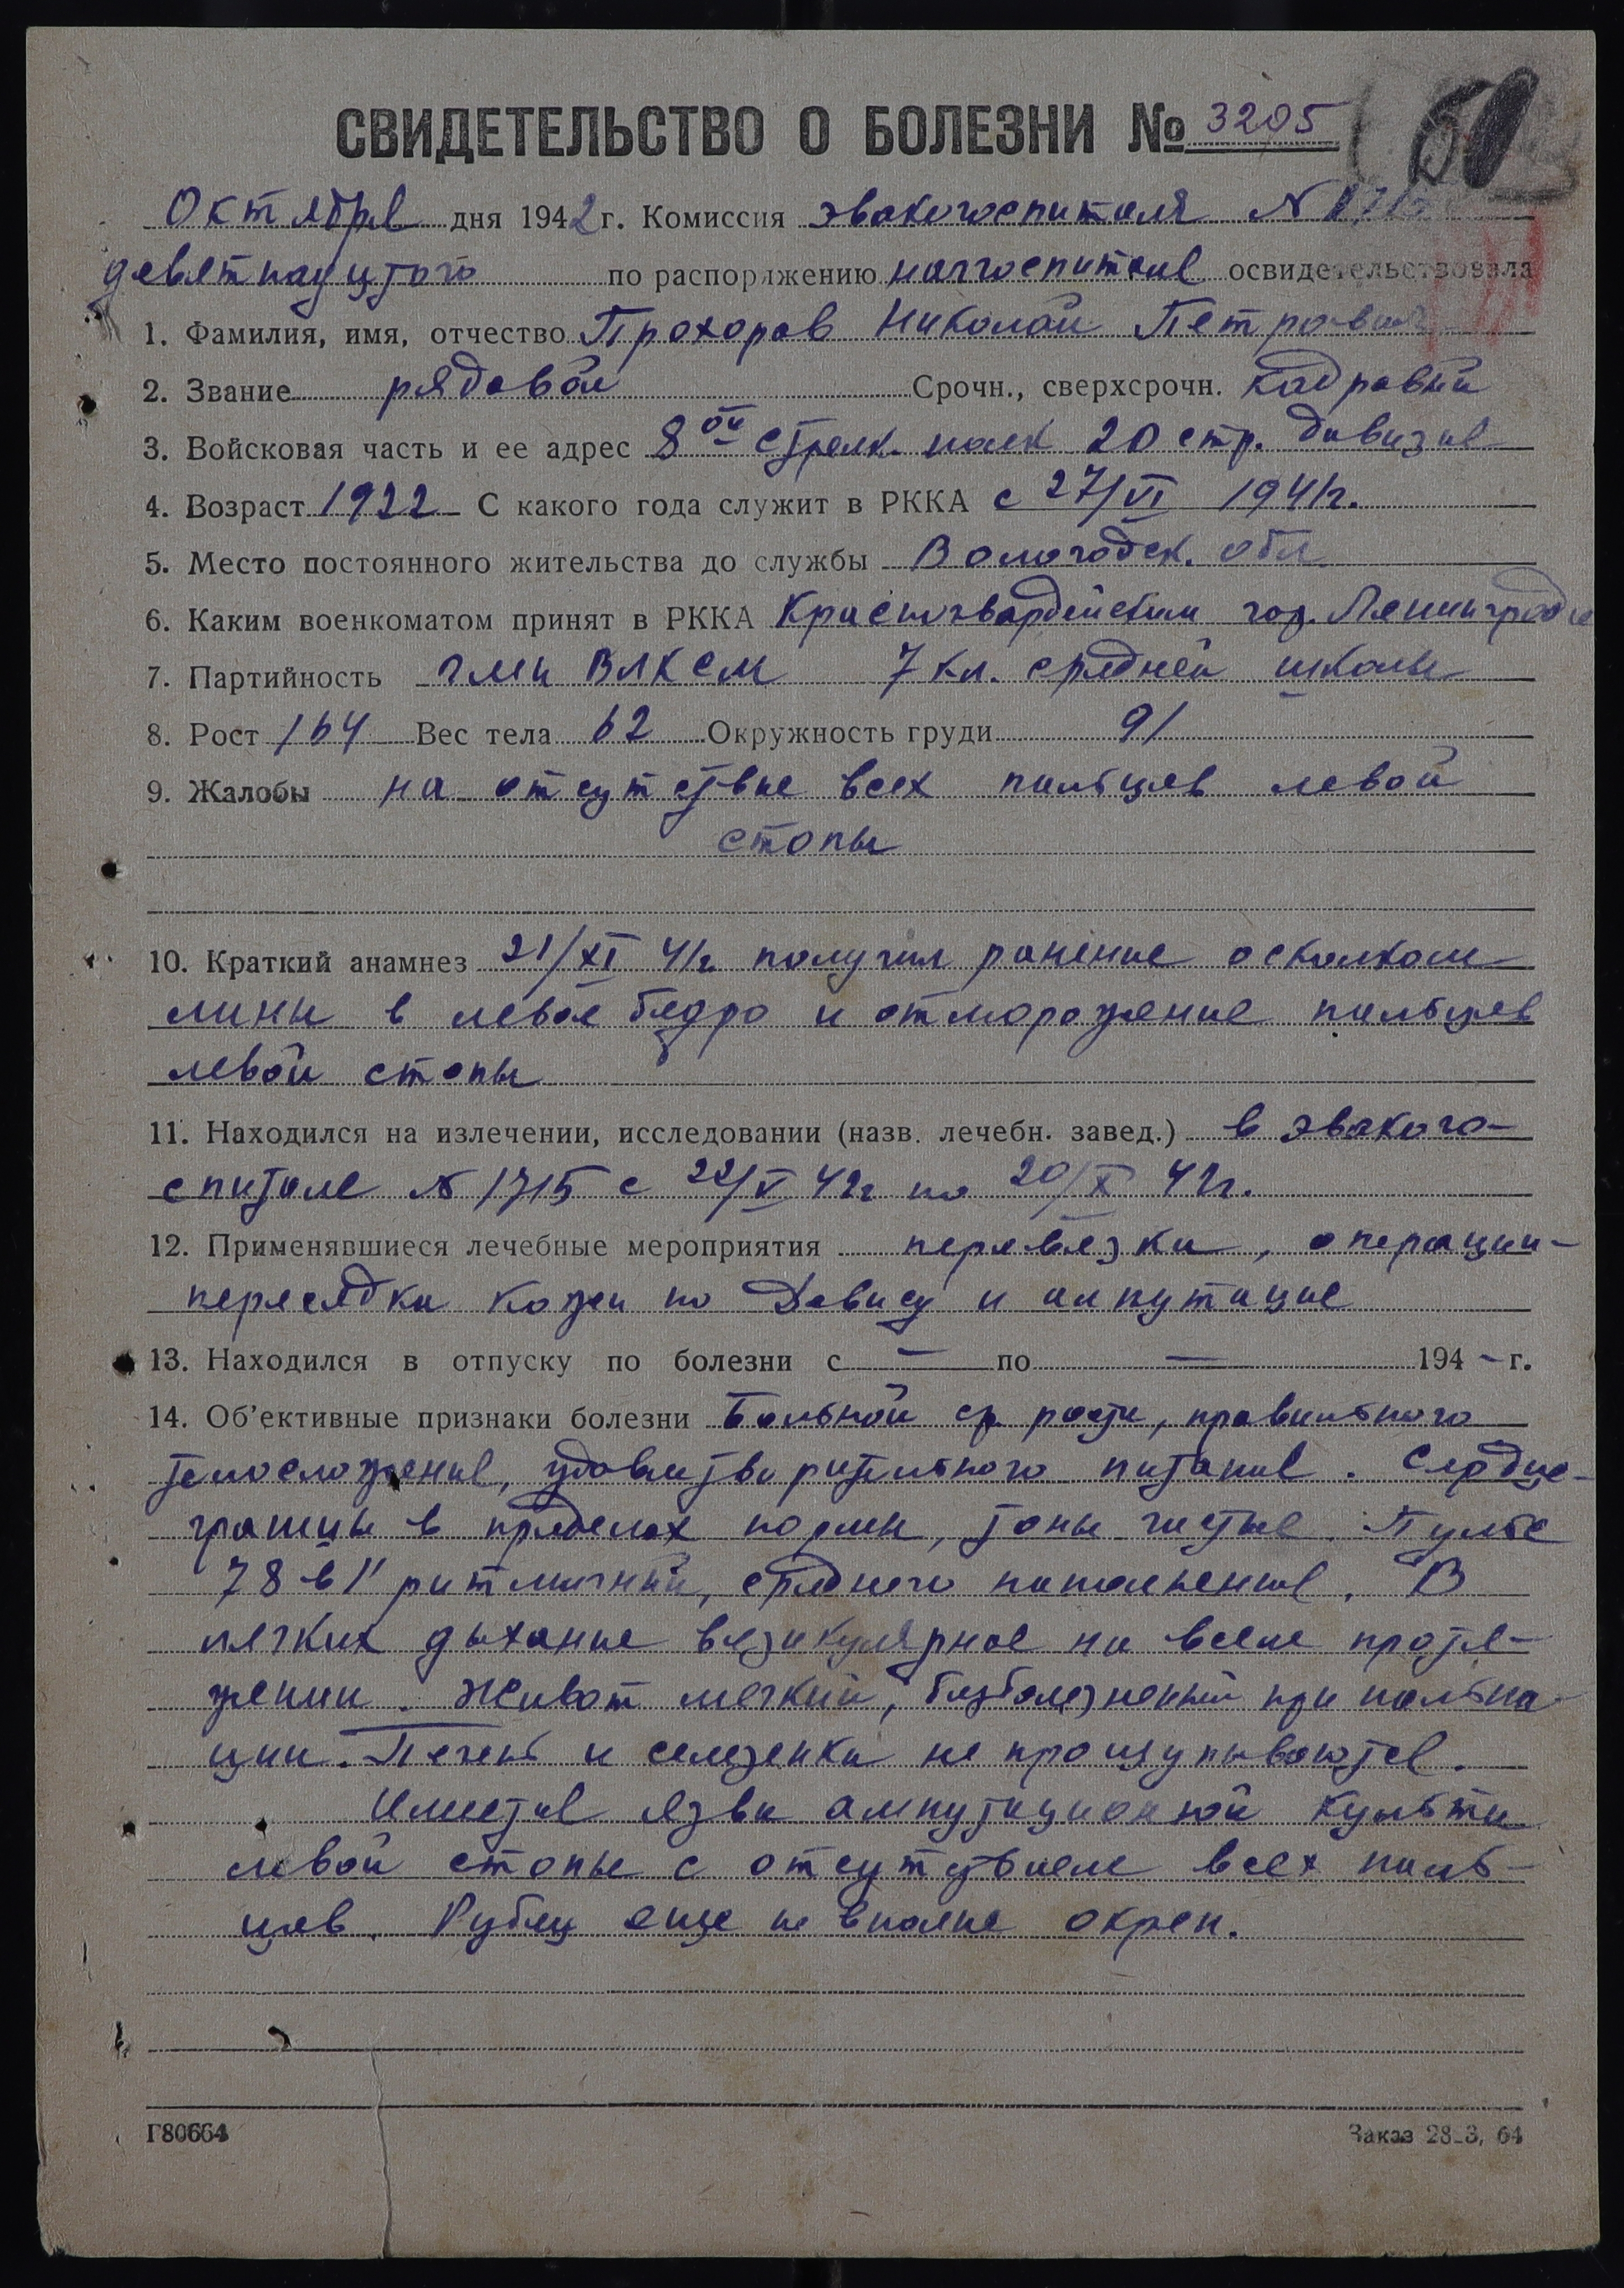 СВИДЕТЕЛЬСТВО О БОЛЕЗНИ № 3205 50
Октября дня 1942 г. Комиссия эвакогоспиталя N
девятнадцтого по распоряжению начгоспиталя освидетельствовала
1. Фамилия, имя, отчество Прохоров Николай Петрович
2. Звание рядовой Срочн., сверхсрочн. кадровый
3. Войсковая часть и ее адрес 8ой стрелк. полк 20 стр. дивизия
4. Возраст 1922 С какого года служит в РККА с 27/VI 1941г.
5. Место постоянного жительства до службы Вологодск. обл
6. Каким военкоматом принят в РККА Красногвардейским гор. Ленинграда
7. Партийность член ВЛКСМ 7 кл. средней школы
8. Рост 164 Вес тела 62 Окружность груди 91
9. Жалобы на отсутствие всех пальцев левой
стопы
10. Краткий анамнез 21/XI 41г. получил ранение осколком
мины в левое бедро и отморожение пальцев
левой стопы
11. Находился на излечении, исследовании (назв. лечебн. завед.) в эвакого-
спитале N 1715 с 22/V 42г по 20/X 42г.
12. Применявшиеся лечебные мероприятия перевязки, операции-
пересадка кожи по Девису и ампутация
13. Находился в отпуску по болезни с — по — 194 - г.
14. Об'ективные признаки болезни Больной ср. роста, правильного
телосложения, удовлетворительного питания. Сердце-
границы в пределах нормы, тоны чистые. Пульс
78 в 1' ритмичный, среднего наполнения. В
легких дыхание везикулярное на всем протя-
жении. Живот мягкий, безболезненный при пальпа-
ции. Печень и селезенка не прощупываются.
Имеется язва ампутационной культи
левой стопы с отсутствием всех паль-
цев. Рубец еще не вполне окреп.
Г80664 Заказ 28_3, 64